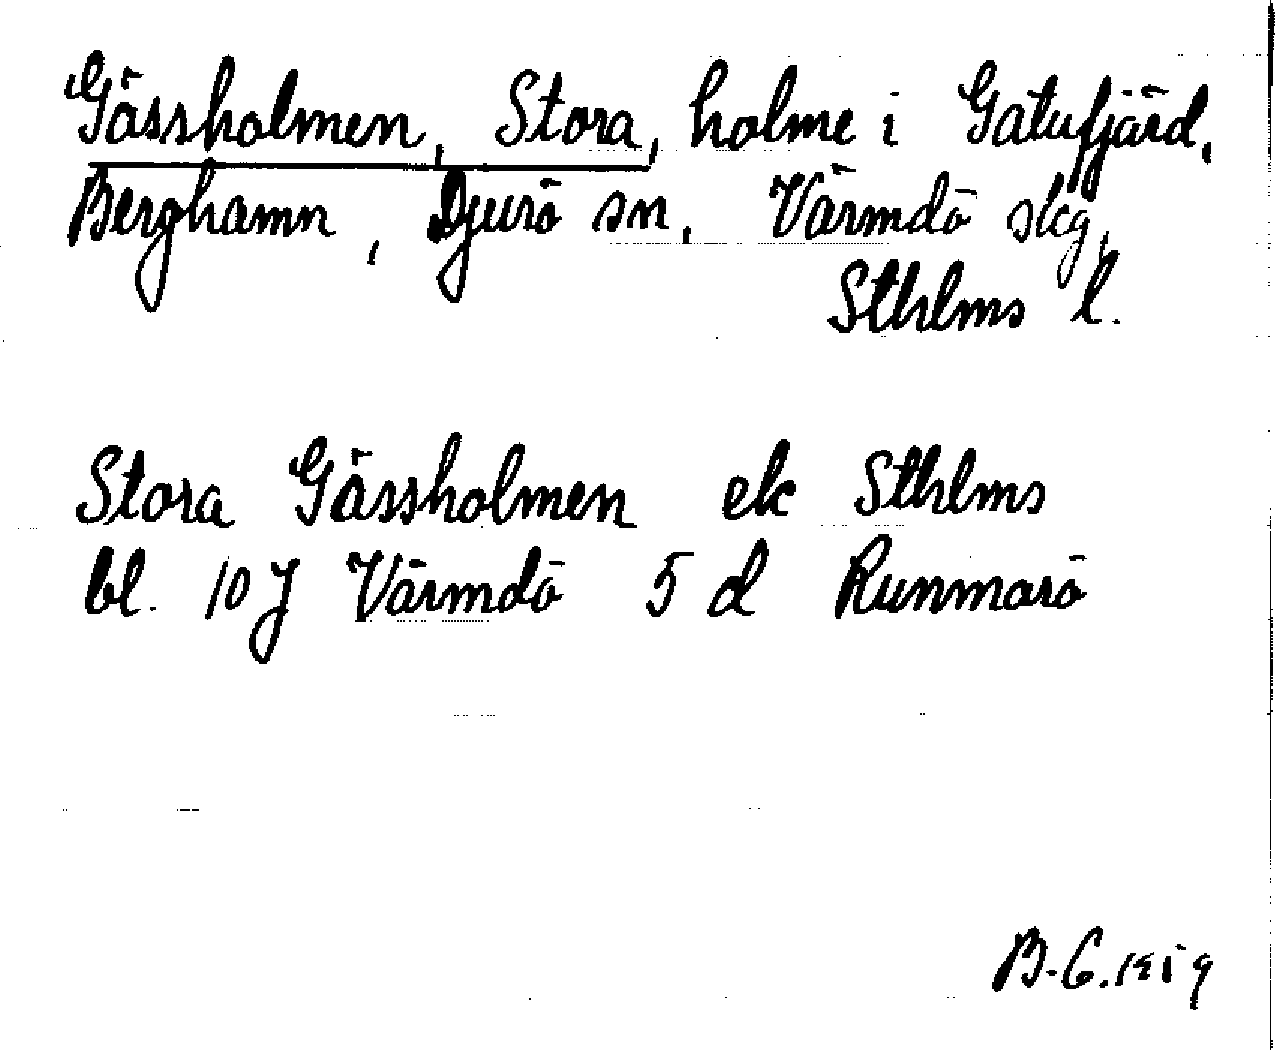 Gässholmen, Stora, holme i Gatufjärd,
Berghamn, Djurö sn, Värmdö skg,
Sthlms l.
Stora Gässholmen ek Sthlms
bl. 10 J Värmdö 5 d Runmarö